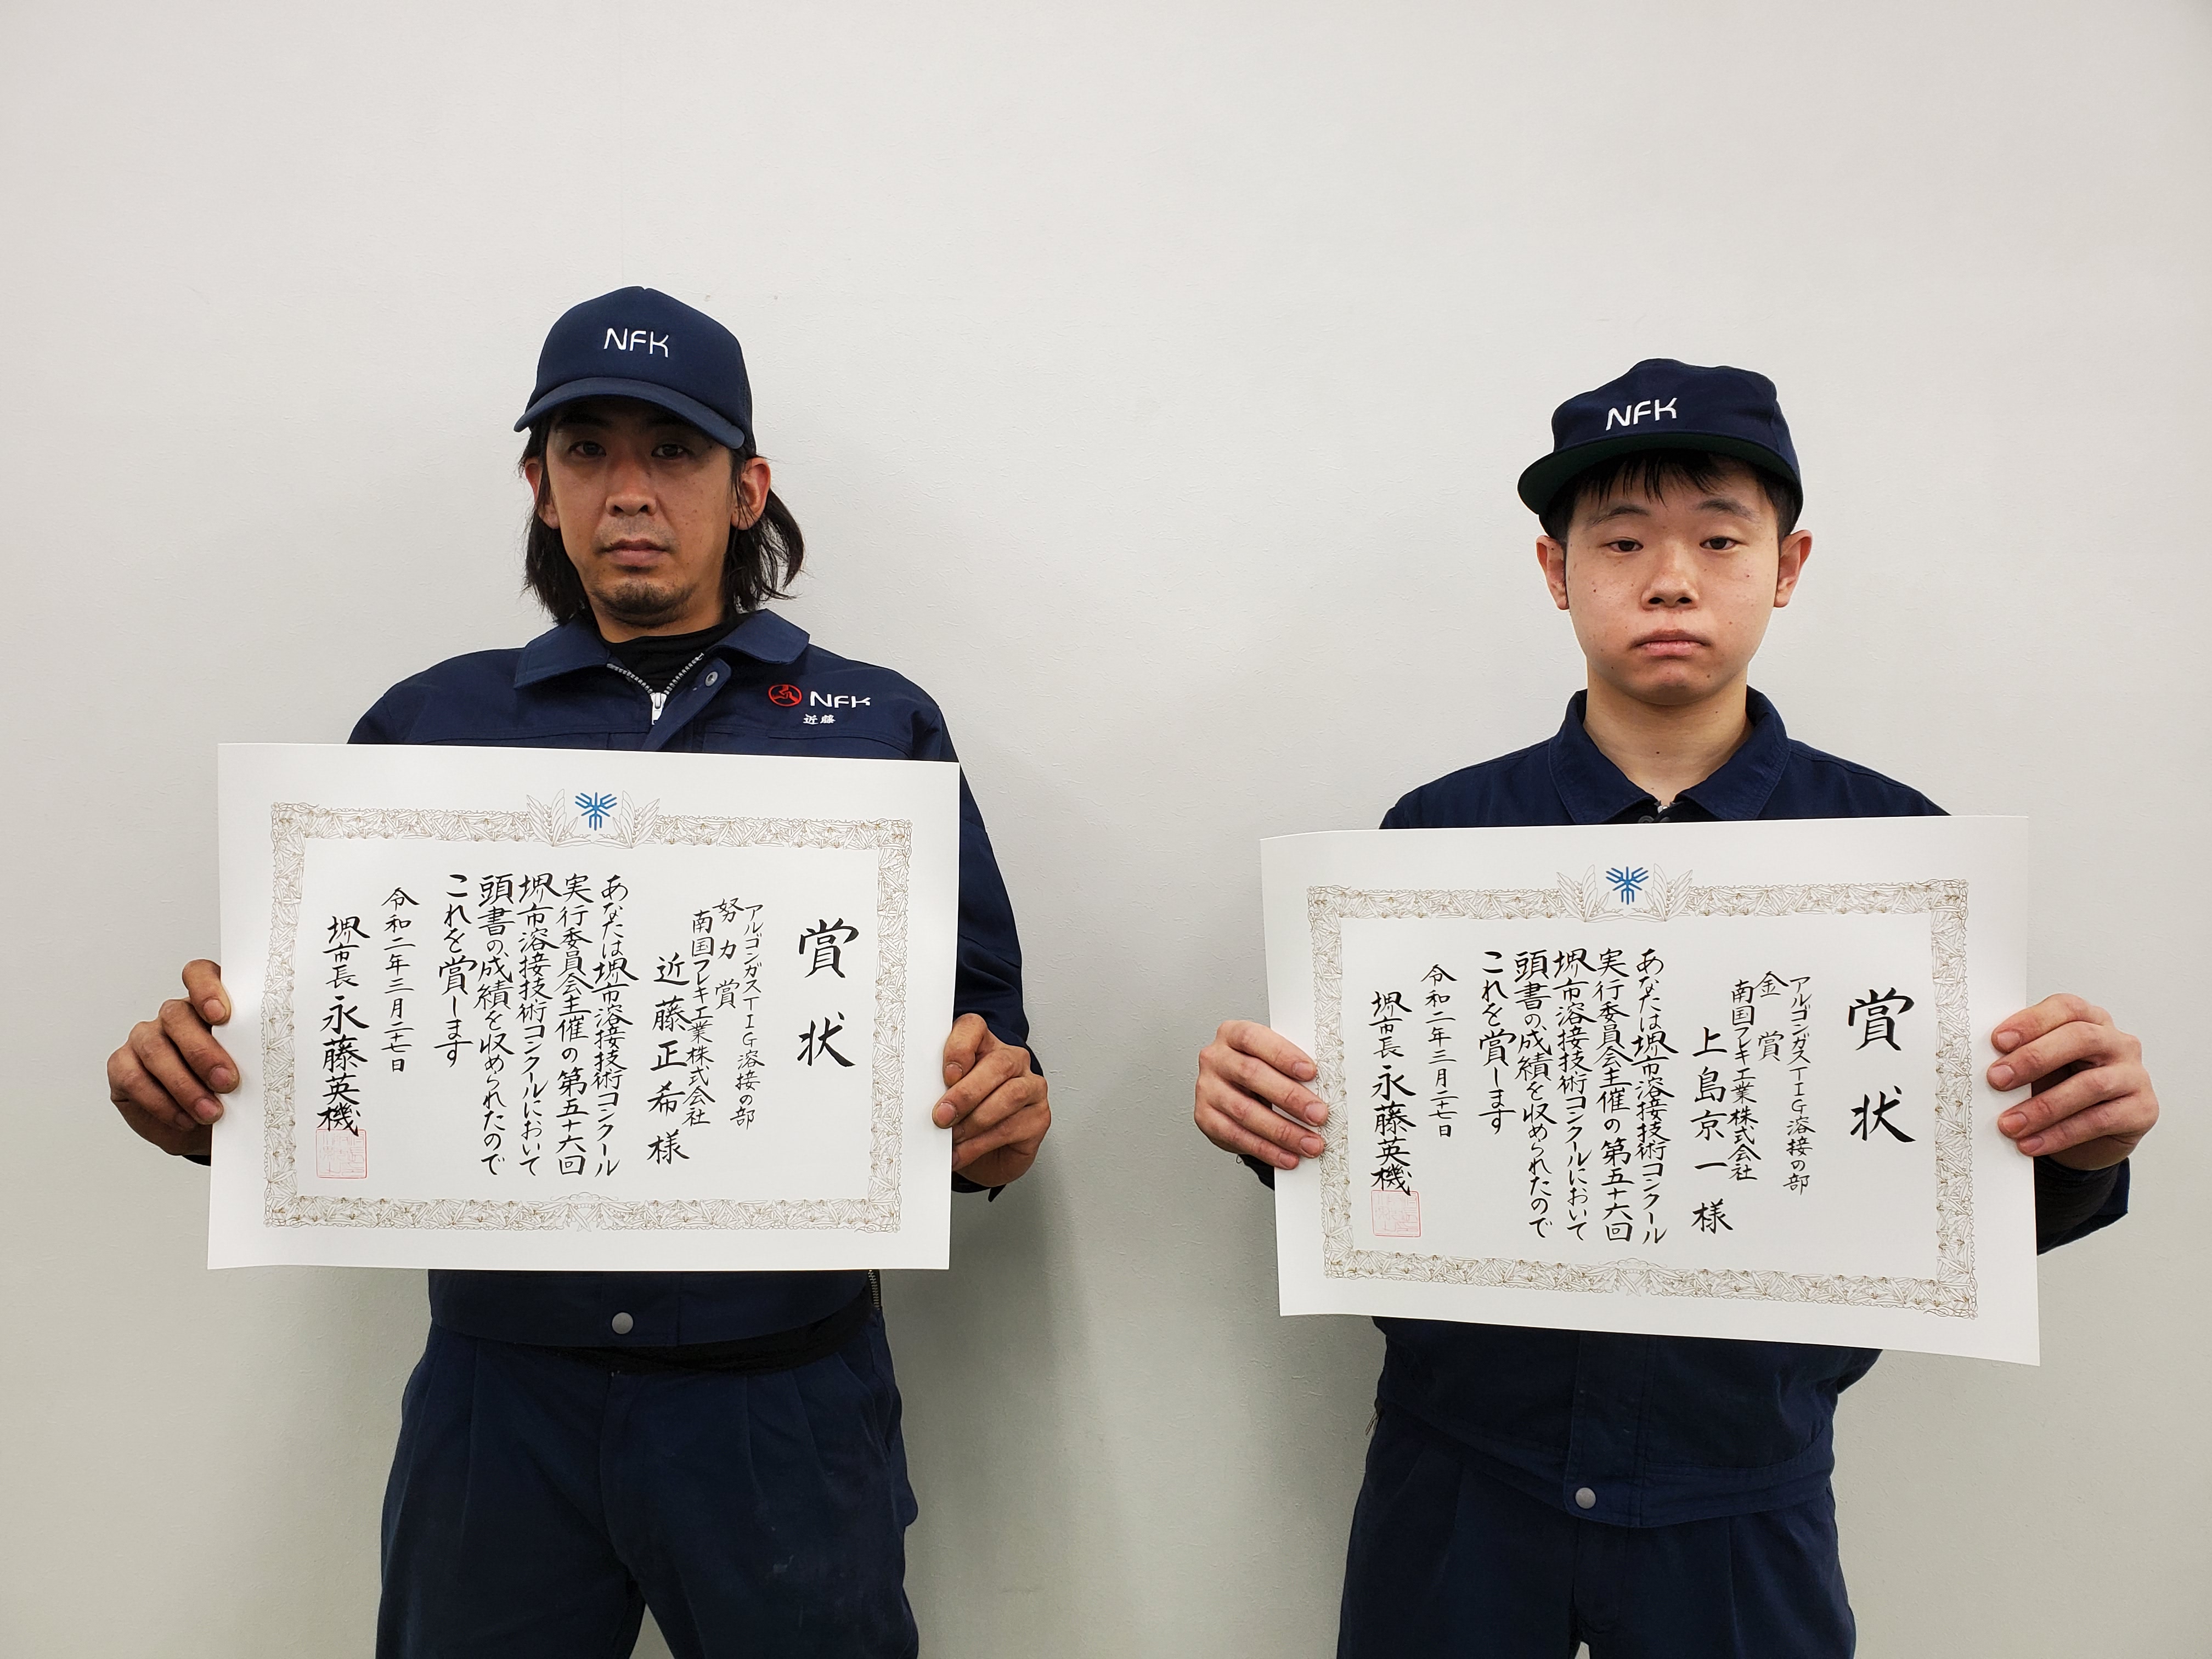 NFK
NFK
近藤
賞状
アルゴンガスTIG溶接の部
努力賞
南国フレキ工業株式会社
近藤正希様
あなたは堺市溶接技術コンクール
実行委員会主催の第五十六回
堺市溶接技術コンクールにおいて
頭書の成績を収められたので
これを賞します
令和二年三月二十七日
堺市長永藤英機
NFK
賞状
アルゴンガスTIG溶接の部
金賞
南国フレキ工業株式会社
上島京一様
あなたは堺市溶接技術コンクール
実行委員会主催の第五十六回
堺市溶接技術コンクールにおいて
頭書の成績を収められたので
これを賞します
令和二年三月二十七日
堺市長永藤英機